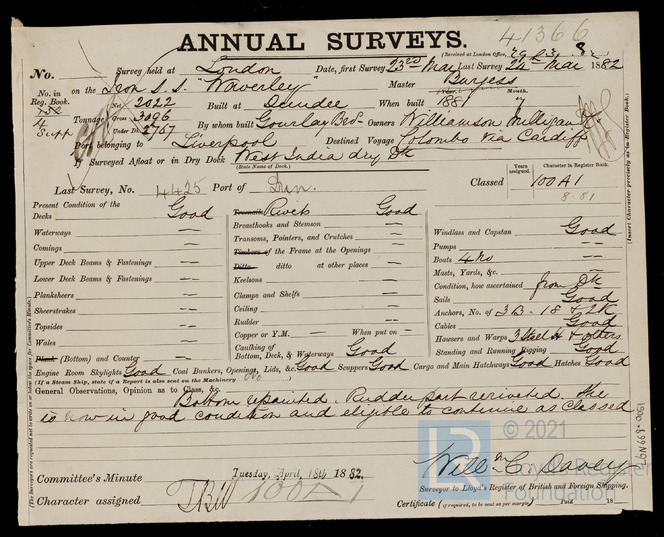 41366
ANNUAL SURVEYS.
(Received at London Office,
No. Survey held at London Date, first Survey 23rd Mar Last Survey 24th Mar 1882
No. in Reg. Book. on the Iron S.S. "Waverley" Master Burgess
Tonnage Net 2022 Gross 3096 Under Dk. 2767 Built at Dundee When built 1881
4 Supp By whom built Gourlay Bros. Owners Williamson Milligan & Co
Port belonging to Liverpool Destined Voyage Colombo via Cardiff
If Surveyed Afloat or in Dry Dock West India dry Dk
(State Name of Dock.)
Last Survey, No. 4425 Port of Dun. Classed Years assigned. Character in Register Book.
100A1
8.81
Present Condition of the
Decks Good
Waterways —
Comings —
Upper Deck Beams & Fastenings —
Lower Deck Beams & Fastenings —
Planksheers —
Sheerstrakes —
Topsides —
Wales —
Plank (Bottom) and Counter —
Treenails Rivets Good
Breasthooks and Stemson —
Transoms, Pointers, and Crutches —
Timbers of the Frame at the Openings —
Ditto ditto at other places —
Keelsons —
Clamps and Shelfs —
Ceiling —
Rudder —
Copper or Y.M. — When put on —
Caulking of Bottom, Deck, & Waterways Good
Windlass and Capstan Good
Pumps —
Boats 4 No —
Masts, Yards, &c. —
Condition, how ascertained from Dk
Sails Good
Anchors, No. of 3B. 1S & 2K
Cables Good
Hawsers and Warps 3 Steel H & others
Standing and Running Rigging Good
Engine Room Skylights Good Coal Bunkers, Openings, Lids, &c. Good Scuppers Good Cargo and Main Hatchways Good Hatches Good
(If a Steam Ship, state if a Report is also sent on the Machinery No
General Observations, Opinion as to Class, &c.
Bottom repainted. Rudder part reriveted. She
is now in good condition and eligible to continue as classed
© 2021
LR
Lloyd's Register
Foundation
Will C. Davey
Surveyor to Lloyd's Register of British and Foreign Shipping.
Committee's Minute Tuesday, April, 18th 1882.
Character assigned 100A1
Certificate (if required, to be sent as per margin) Paid 18
(Insert Character precisely as in Register Book.)